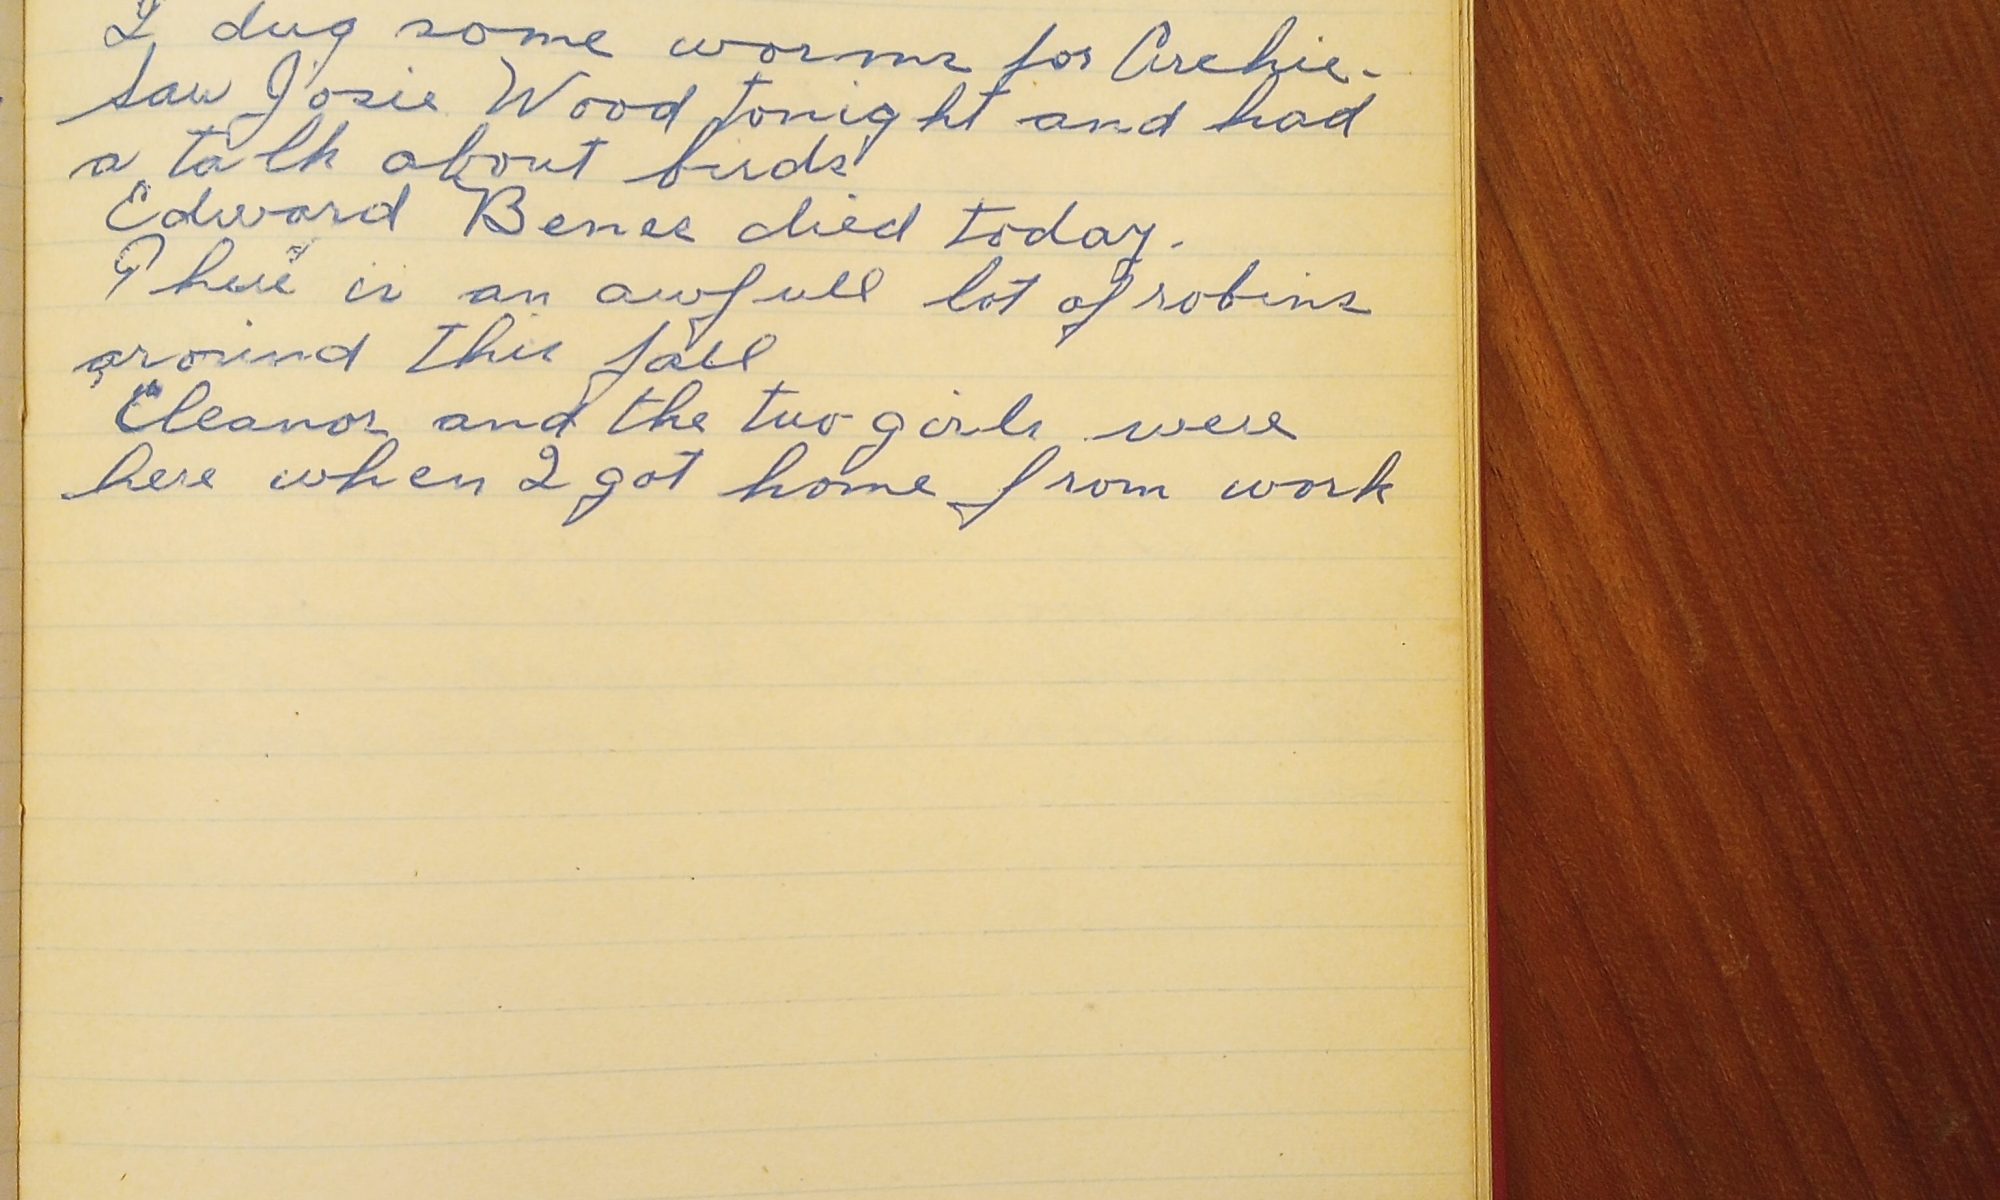 I dug some worms for Archie.
Saw Josie Wood tonight and had
a talk about birds
Edward Benes died today.
There is an awfull lot of robins
around this fall
Eleanor and the two girls were
here when I got home from work